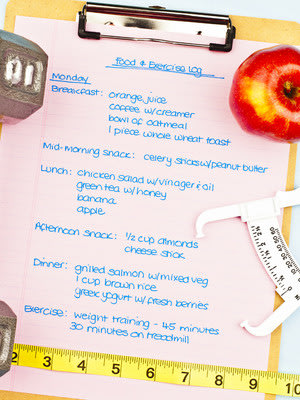 Food & Exercise Log
Monday
Breakfast: orange juice
coffee w/creamer
bowl of oatmeal
1 piece whole wheat toast
Mid-morning snack: celery sticks w/peanut butter
Lunch: chicken salad w/vinager & oil
green tea w/honey
banana
apple
Afternoon snack: 1/2 cup almonds
cheese stick
Dinner: grilled salmon w/mixed veg
1 cup brown rice
greek yogurt w/fresh berries
Exercise: weight training - 45 minutes
30 minutes on treadmill
10
2 3 4 5 6 7 8 9 10